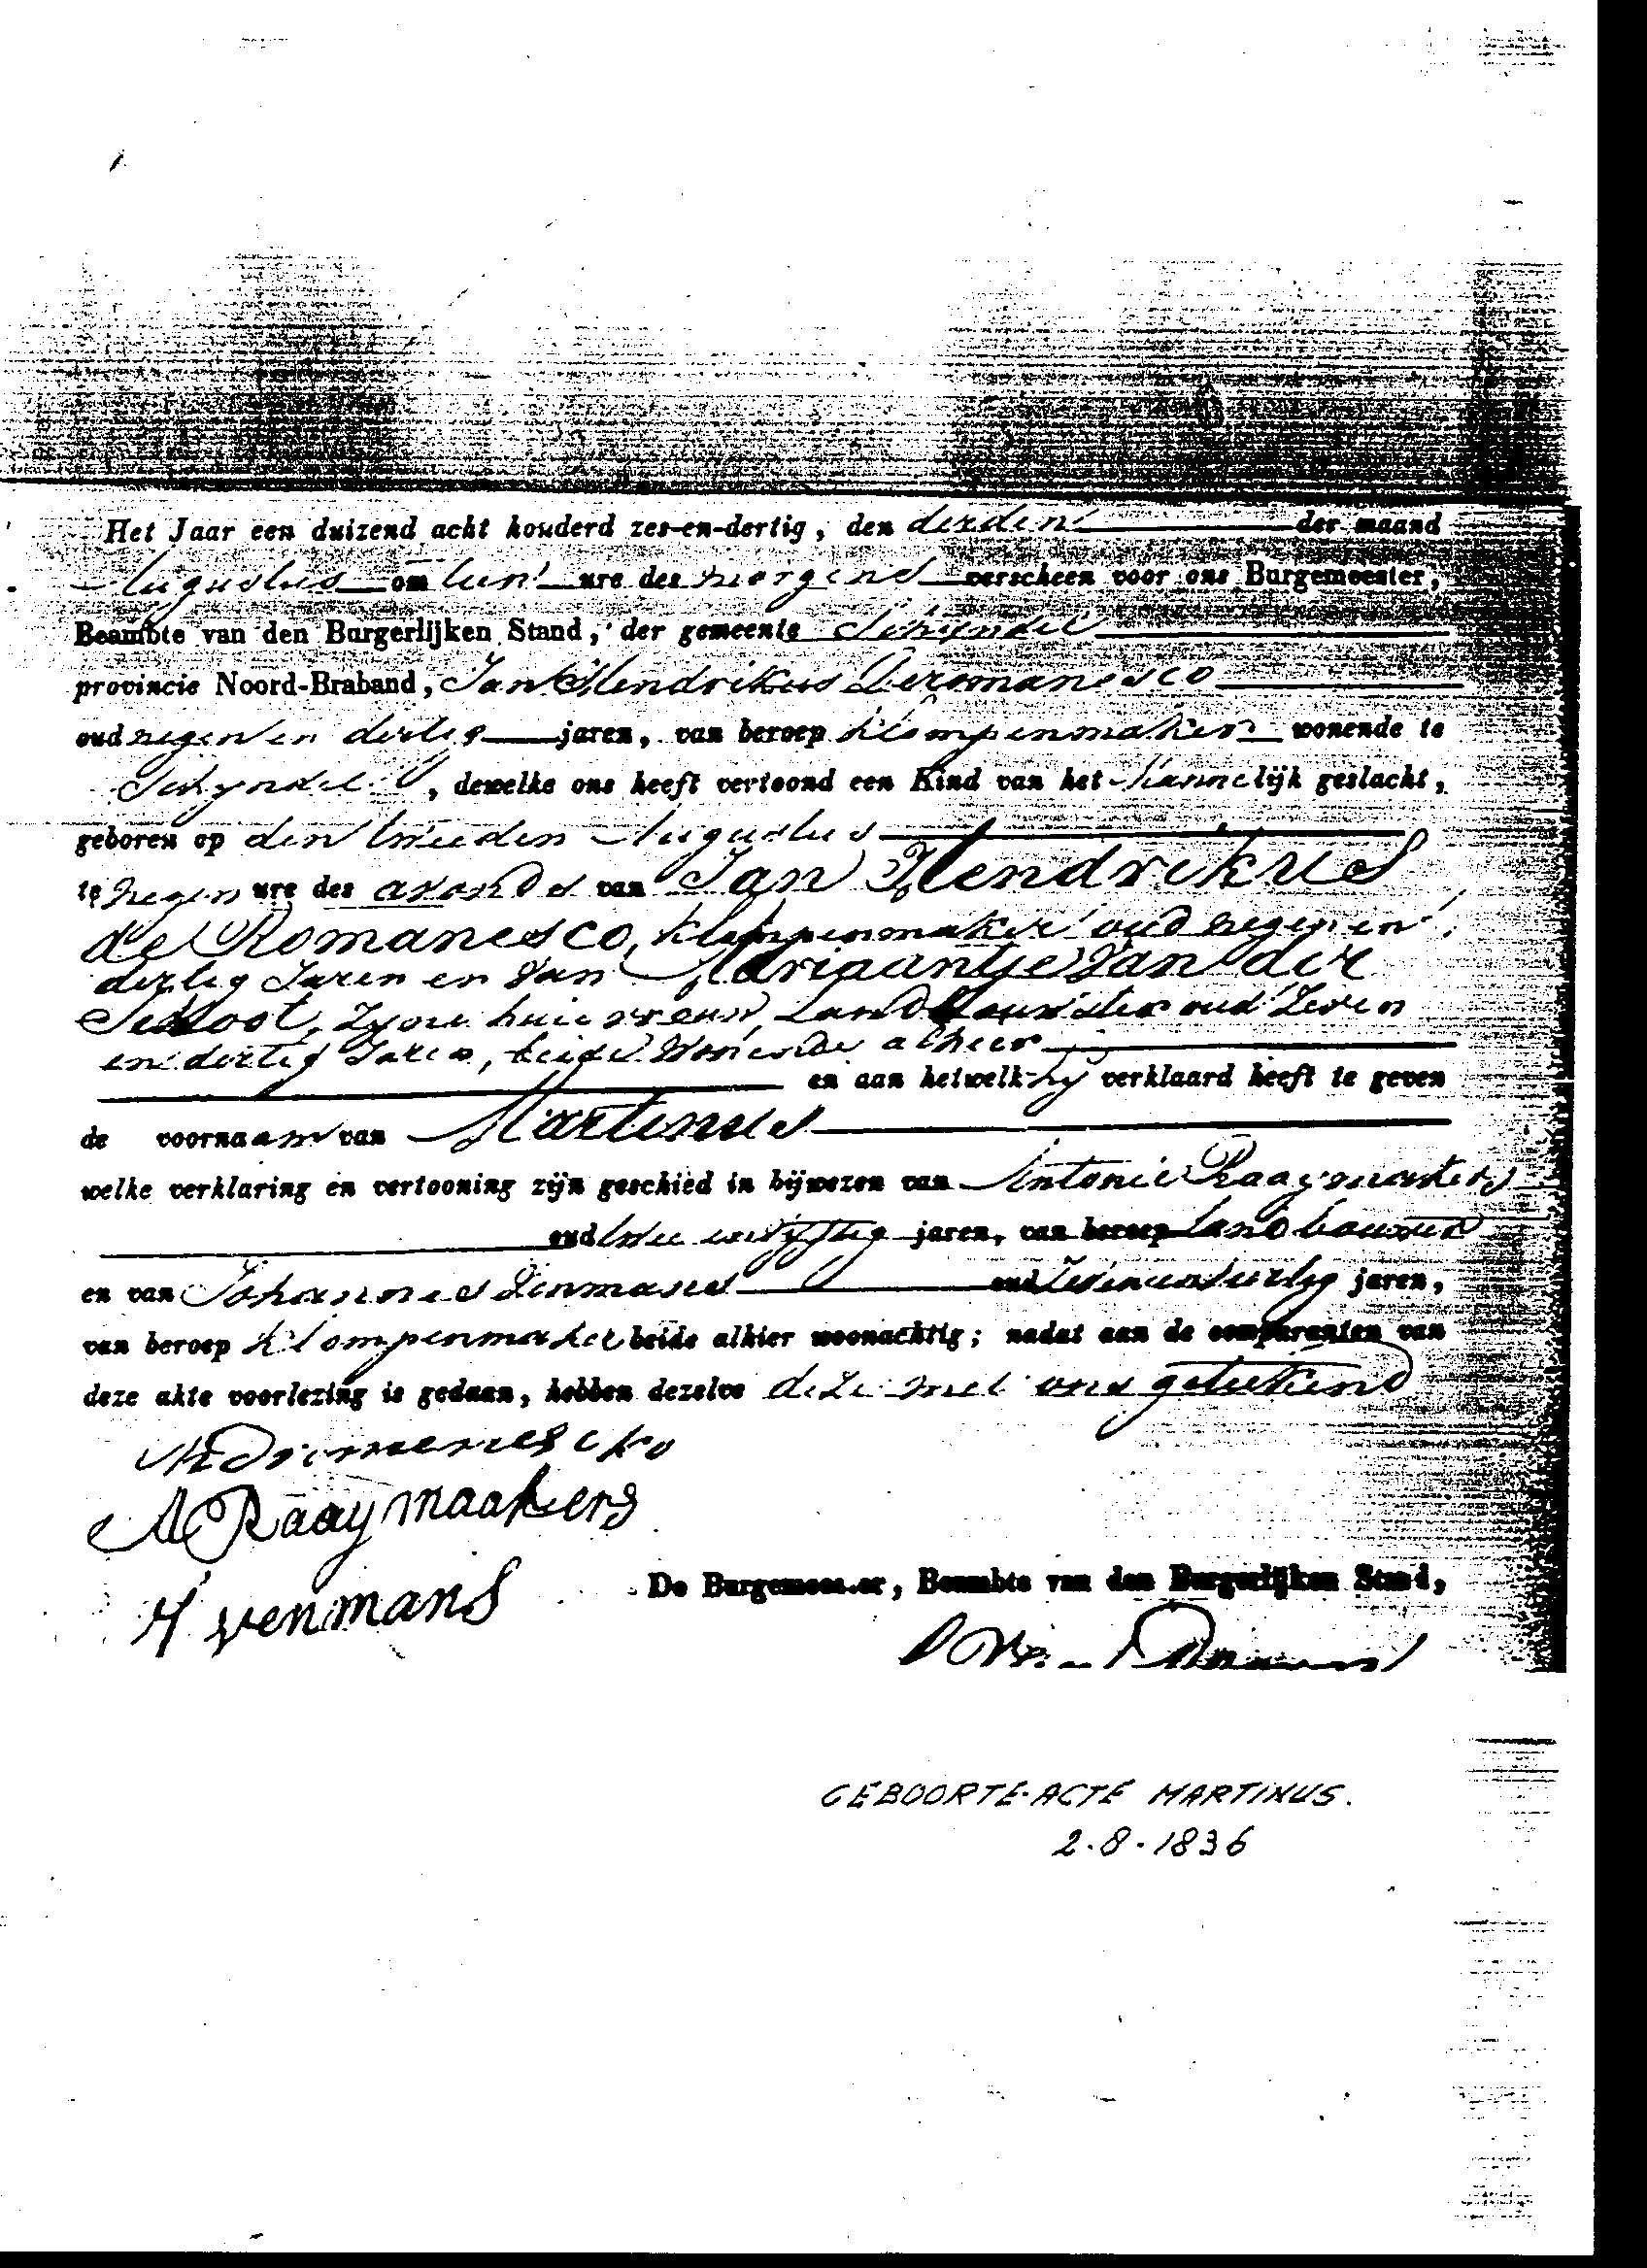 Het Jaar een duizend acht honderd zes-en-dertig, den derden der maand
Augustus om tien ure des morgens verscheen voor ons Burgemeester,
Beambte van den Burgerlijken Stand, der gemeente Schyndel
provincie Noord-Braband, Jan Hendrikus Deromanesco
oud negen en dertig jaren, van beroep klompenmaker wonende te
Schyndel, dewelke ons heeft vertoond een Kind van het mannelijk geslacht,
geboren op den tweeden Augustus
te negen ure des avonds van Jan Hendrikus
de Romanesco, klompenmaker oud negen en
dertig Jaren en van Adriaantje van der
Schoot, Zyne huisvrouw, Landbouwster oud Zeven
en dertig Jaren, beide Wonende alhier
en aan hetwelk hy verklaard heeft te geven
de voornaam van Martinus
welke verklaring en vertooning zijn geschied in bijwezen van Antonie Raaymakers
oud twee en vyftig jaren, van beroep landbouwer
en van Johannes Venmans oud Zeven en dertig jaren,
van beroep klompenmaker beide alhier woonachtig; nadat aan de comparanten van
deze akte voorlezing is gedaan, hebben dezelve deze met ons geteekend
A Raaymaakers
H venmans
De Burgemeester, Beambte van den Burgerlijken Stand,
GEBOORTE-ACTE MARTINUS.
2.8.1836